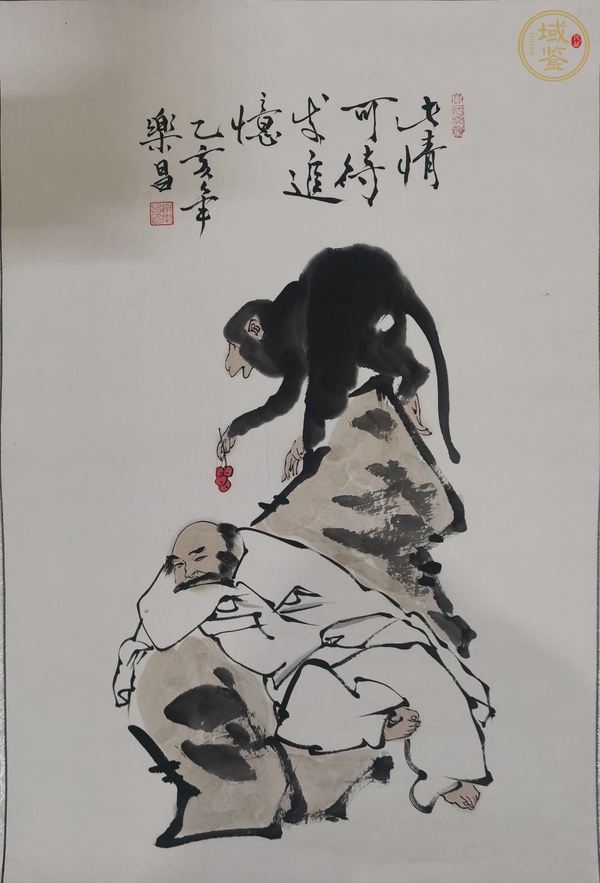 此情
可待
成追
憶
乙亥年
樂昌
域鉴